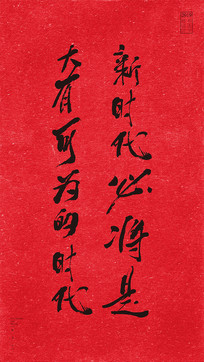 新时代必将是
大有可为的时代